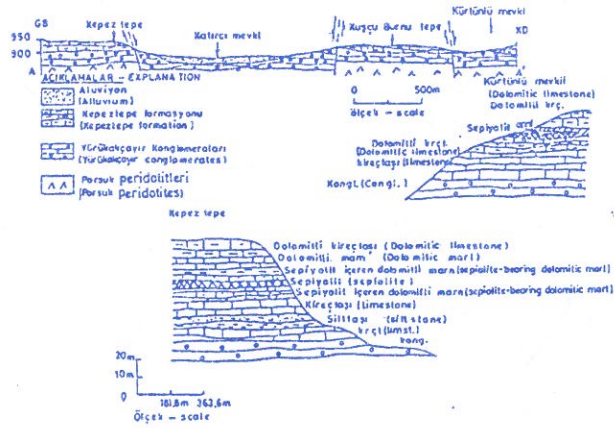 GB Kepez tepe Katırcı mevki Kuşçu Burnu tepe Kürtünlü mevki XD
950
900
A A'
AÇIKLAMALAR – EXPLANATION
Aluviyon
(Alluvium)
Kepeztepe formasyonu
(Kepeztepe formation)
Yürükakçayır Konglomeraları
(Yürükakçayır conglomerates)
Porsuk peridotitleri
(Porsuk peridotites)
0 500m
ölçek – scale
Kürtünlü mevkii
(Dolomitic limestone)
Dolomitli krç.
Sepiyolit
Dolomitli krçt.
(Dolomitic limestone)
kireçtaşı (limestone)
Kongl. (Congl.)
Kepez tepe
Dolomitli kireçtaşı (Dolomitic limestone)
Dolomitli marn (Dolomitic marl)
Sepiyolit içeren dolomitli marn (sepiolite-bearing dolomitic marl)
Sepiyolit (sepiolite)
Sepiyolit içeren dolomitli marn (sepiolite-bearing dolomitic marl)
Kireçtaşı (limestone)
Silttaşı (siltstone)
krçt (limst.)
kong.
20m
10m
0
181,8m 363,6m
Ölçek – scale